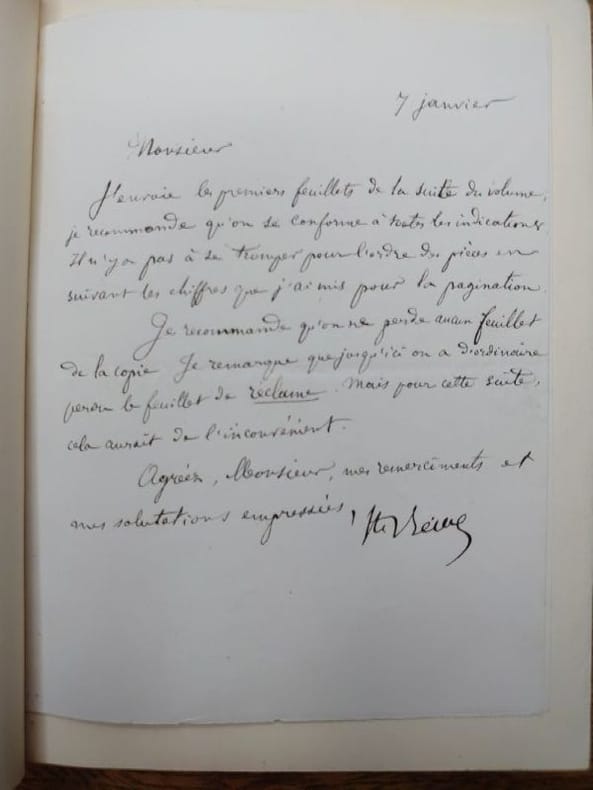 7 janvier
Monsieur
J'envoie les premiers feuillets de la suite du volume,
je recommande qu'on se conforme à toutes les indications.
Il n'y a pas à se tromper pour l'ordre des pièces en
suivant les chiffres que j'ai mis pour la pagination.
Je recommande qu'on ne perde aucun feuillet
de la copie. Je remarque que jusqu'ici on a d'ordinaire
perdu le feuillet de réclame. Mais pour cette suite,
cela aurait de l'inconvénient.
Agréez, Monsieur, mes remercîments et
mes salutations empressées,
Ste Beuve